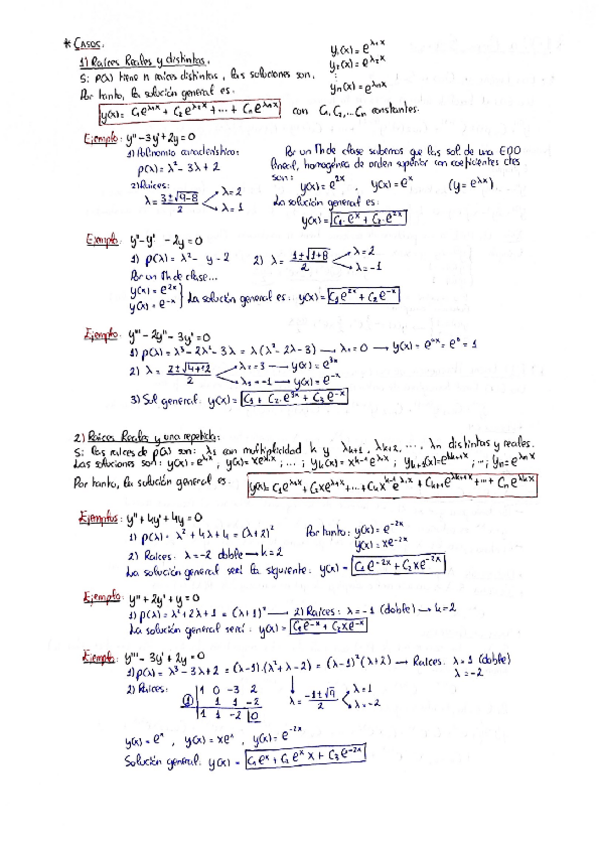 * CASOS:
1) Raíces Reales y distintas.
y₁(x) = e^{λ₁x}
y₂(x) = e^{λ₂x}
yₙ(x) = e^{λₙx}
Si P(λ) tiene n raíces distintas, las soluciones son.
Por tanto, la solución general es:
y(x) = C₁e^{λ₁x} + C₂e^{λ₂x} + ... + Cₙe^{λₙx} con C₁, C₂, ... Cₙ constantes.
Ejemplo: y'' - 3y' + 2y = 0
1) Polinomio característico:
p(λ) = λ² - 3λ + 2
2) Raíces:
λ = (3 ± √(9-8))/2 λ = 2
λ = 1
Por un Th de clase sabemos que las sol de una EDO
lineal, homogénea de orden superior con coeficientes ctes
son: y(x) = e^{2x}, y(x) = e^x (y = e^{λx})
La solución general es:
y(x) = C₁·e^x + C₂·e^{2x}
Ejemplo: y'' - y' - 2y = 0
1) p(λ) = λ² - y - 2 2) λ = (1 ± √(1+8))/2 λ = 2
λ = -1
Por un Th de clase...
y(x) = e^{2x}
y(x) = e^{-x} } La solución general es: y(x) = C₁e^{2x} + C₂e^{-x}
Ejemplo: y''' - 2y'' - 3y' = 0
1) p(λ) = λ³ - 2λ² - 3λ = λ(λ² - 2λ - 3) → λ₁ = 0 → y(x) = e^{0x} = e⁰ = 1
2) λ = (2 ± √(4+12))/2 λ₂ = 3 → y(x) = e^{3x}
λ₃ = -1 → y(x) = e^{-x}
3) Sol general: y(x) = C₁ + C₂·e^{3x} + C₃e^{-x}
2) Raíces Reales y una repetida:
Si las raíces de p(λ) son: λ₁ con multiplicidad k y λ_{k+1}, λ_{k+2}, ..., λₙ distintas y reales.
Las soluciones son: y(x) = e^{λ₁x}, y(x) = xe^{λ₁x}; ...; y_k(x) = x^{k-1}e^{λ₁x}; y_{k+1}(x) = e^{λ_{k+1}x}; ...; yₙ = e^{λₙx}
Por tanto, la solución general es: y(x) = C₁e^{λ₁x} + C₂xe^{λ₁x} + ... + C_k x^{k-1}e^{λ₁x} + C_{k+1}e^{λ_{k+1}x} + ... + Cₙe^{λₙx}
Ejemplos: y'' + 4y' + 4y = 0
1) p(λ) = λ² + 4λ + 4 = (λ+2)² Por tanto: y(x) = e^{-2x}
y(x) = xe^{-2x}
2) Raíces. λ = -2 doble → k = 2
La solución general será la siguiente: y(x) = C₁e^{-2x} + C₂xe^{-2x}
Ejemplo: y'' + 2y' + y = 0
1) p(λ) = λ² + 2λ + 1 = (λ+1)² → 2) Raíces: λ = -1 (doble) → k = 2
La solución general será: y(x) = C₁e^{-x} + C₂xe^{-x}
Ejemplo: y''' - 3y' + 2y = 0
1) p(λ) = λ³ - 3λ + 2 = (λ-1)·(λ² + λ - 2) = (λ-1)²(λ+2) → Raíces. λ = 1 (doble)
λ = -2
2) Raíces:
1 0 -3 2
1 1 1 -2
1 1 -2 0
λ = (-1 ± √9)/2 λ = 1
λ = -2
y(x) = e^x, y(x) = xe^x, y(x) = e^{-2x}
Solución general. y(x) = C₁e^x + C₂e^x x + C₃e^{-2x}